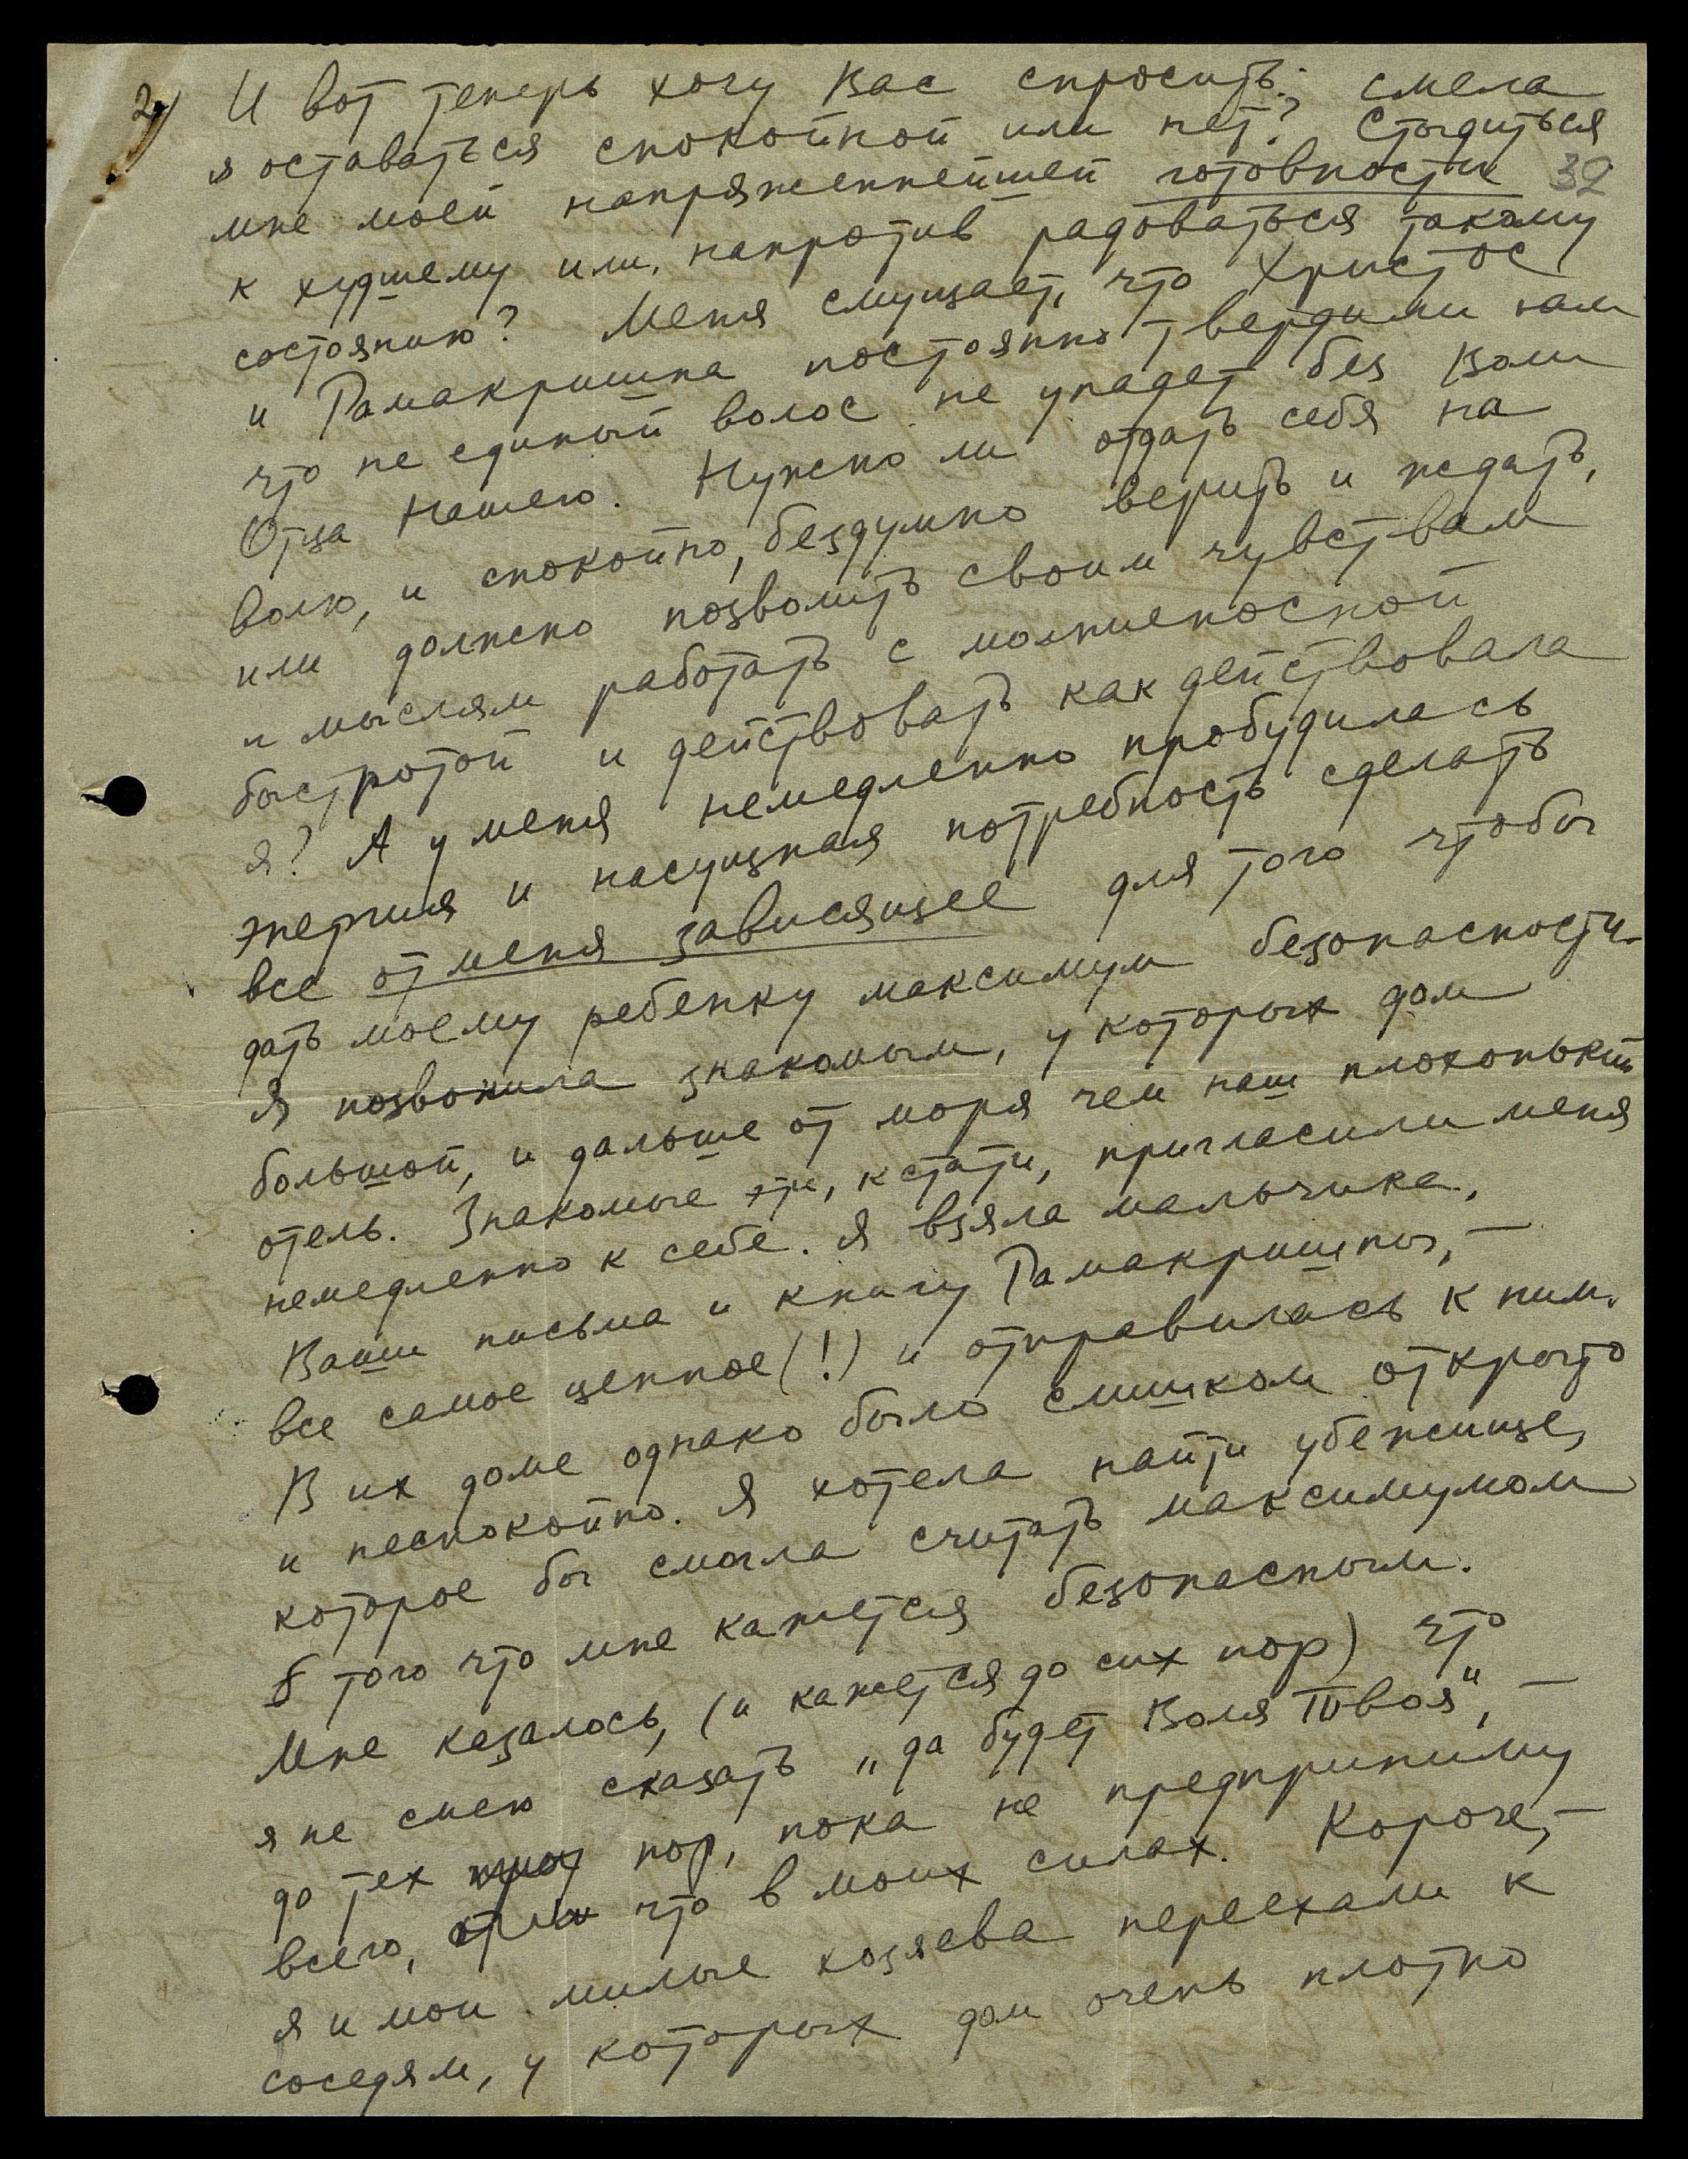 2) И вот теперь хочу Вас спросить: смела
я оставаться спокойной или нет? Стыдиться
32
мне моей напряженнейшей готовности
к худшему или, напротив радоваться такому
состоянию? Меня смущает, что Христос
и Рамакришна постоянно твердили нам
что не единый волос не упадет без Воли
Отца Нашего. Нужно ли отдать себя на
волю, и спокойно, бездумно верить и ждать,
или должно позволить своим чувствам
и мыслям работать с молниеносной
быстротой и действовать как действовала
я? А у меня немедленно пробудилась
энергия и насущная потребность сделать
все от меня зависящее для того чтобы
дать моему ребенку максимум безопасности.
Я позвонила знакомым, у которых дом
большой, и дальше от моря чем наш плохонький
отель. Знакомые эти, кстати, пригласили меня
немедленно к себе. Я взяла мальчика,
Ваши письма и книгу Рамакришны, –
все самое ценное (!) и отправилась к ним.
В их доме однако было слишком открыто
и неспокойно. Я хотела найти убежище,
которое бы смогла считать максимумом
того что мне кажется безопасным.
Мне казалось, (и кажется до сих пор) что
я не смею сказать „да будет Воля Твоя", –
до тех пор, пока не предприниму
всего, что в моих силах. Короче, –
я и мои милые хозяева переехали к
соседям, у которых дом очень плотно